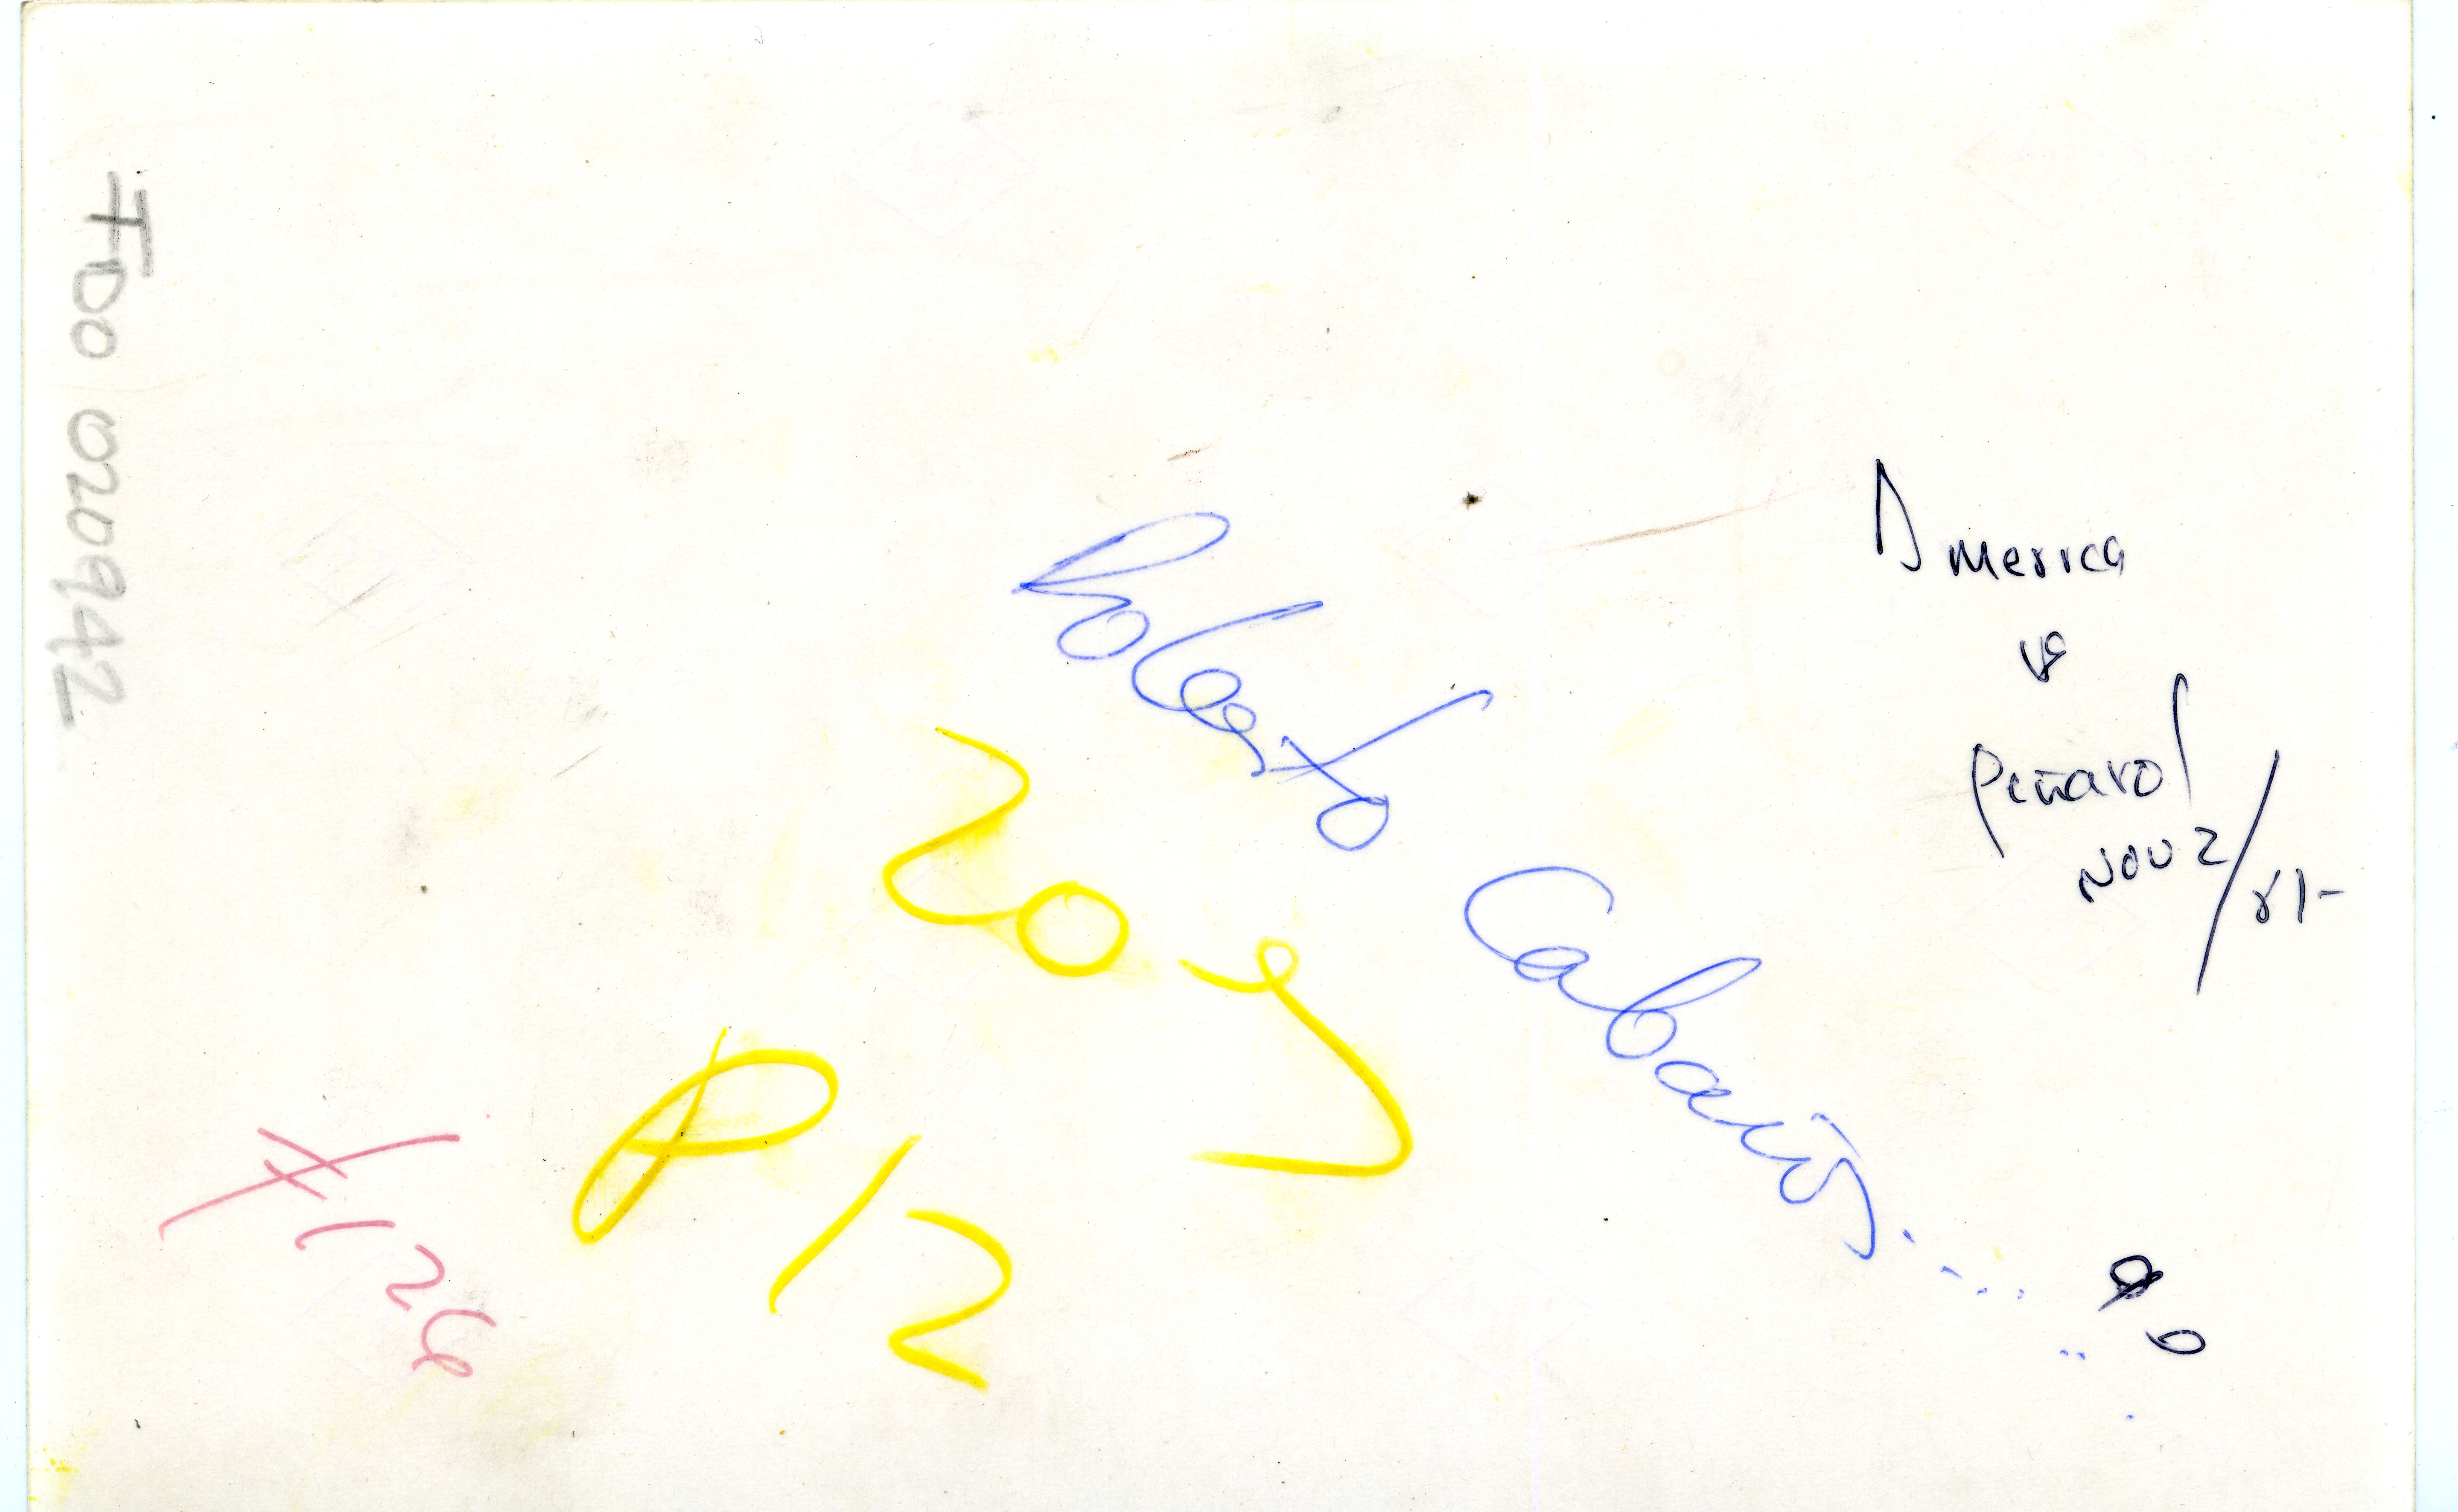 FDO 020942
America
vs
Peñarol
Nov 2/81-
Roberto Cabañas
20 J
P12
#126